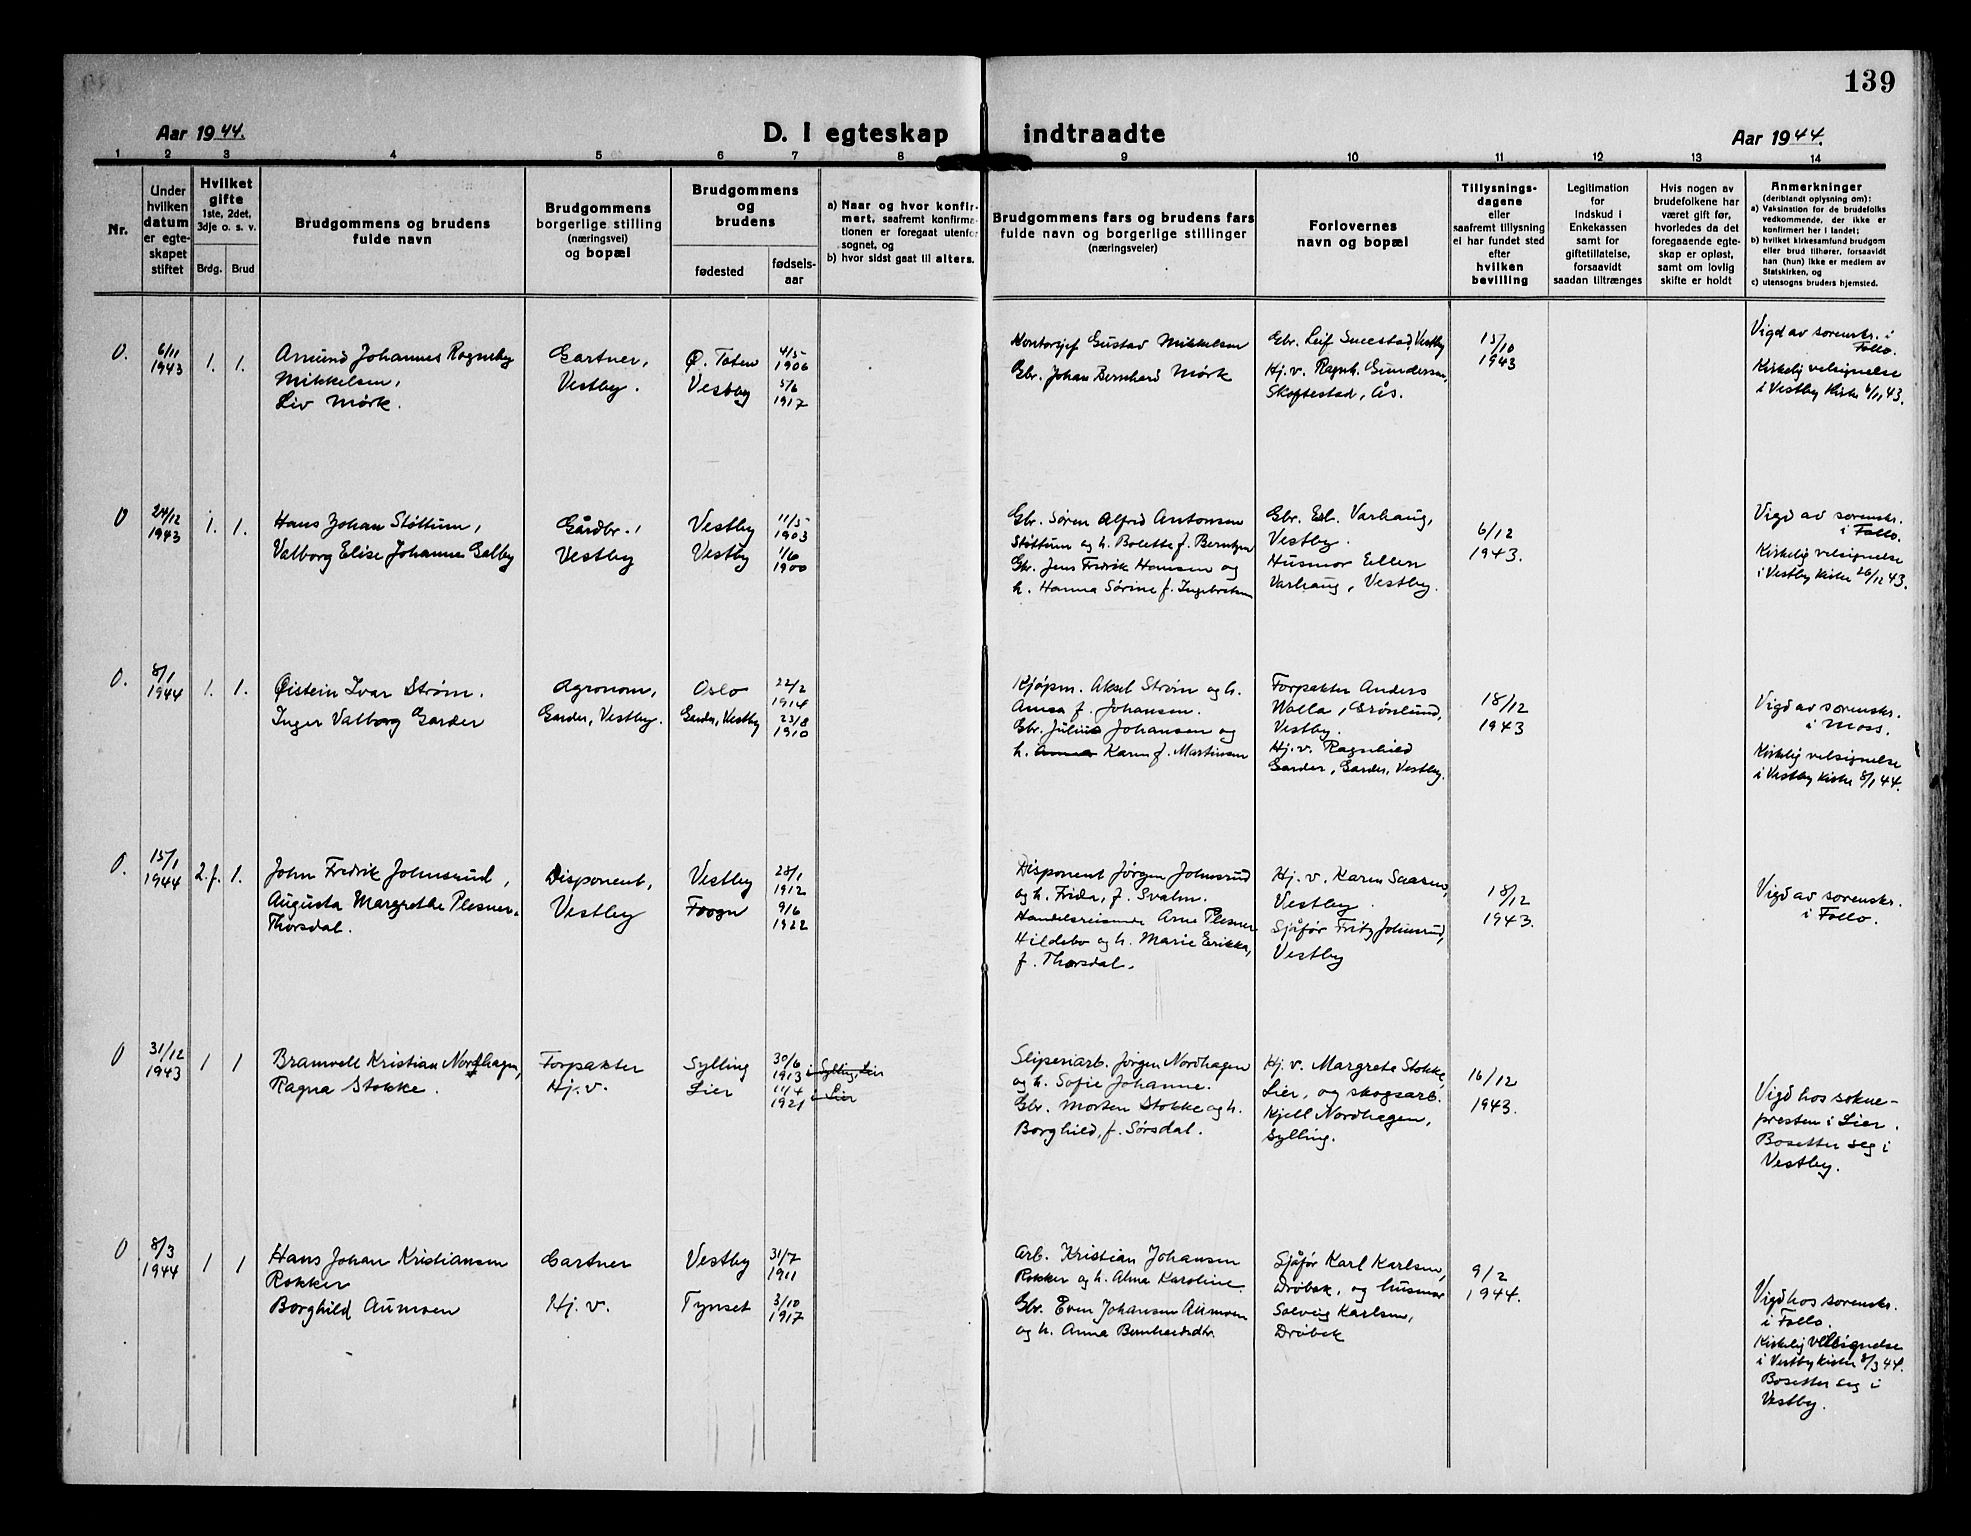 139
Aar 1944.
D. I egteskap indtraadte
Aar 1944.
1 2 3 4 5 6 7 8 9 10 11 12 13 14
Nr.
Under
hvilken
datum
er egte-
skapet
stiftet
Hvilket
gifte
1ste, 2det,
3dje o. s. v.
Brdg. Brud
Brudgommens og brudens
fulde navn
Brudgommens
borgerlige stilling
(næringsvei)
og bopæl
Brudgommens
og
brudens
fødested
fødsels-
aar
a) Naar og hvor konfir-
mert, saafremt konfirma-
tionen er foregaat utenfor
sognet, og
b) hvor sidst gaat til alters.
Brudgommens fars og brudens fars
fulde navn og borgerlige stillinger
(næringsveier)
Forlovernes
navn og bopæl
Tillysnings-
dagene
eller
saafremt tillysning
ei har fundet sted
efter
hvilken
bevilling
Legitimation
for
Indskud i
Enkekassen
samt for
giftetillatelse,
forsaavidt
saadan tiltrænges
Hvis nogen av
brudefolkene har
været gift før,
hvorledes da det
foregaaende egte-
skap er opløst,
samt om lovlig
skifte er holdt
Anmerkninger
(deriblandt oplysning om):
a) Vaksinstion for de brudefolks
vedkommende, der ikke er
konfirmert her i landet;
b) hvilket kirkesamfund brudgom
eller brud tilhører, forsaavidt
han (hun) ikke er medlem av
Statskirken, og
c) utensogns bruders hjemsted.
0.
6/11
1943
1. 1.
Amund Johannes Rogneby
Mikkelsen,
Liv Mørk.
Gartner,
Vestby.
Ø. Toten
Vestby
4/5
1906
5/6
1917
Kontorsjef Gustav Mikkelsen
Gbr. Johan Bernhard Mørk
Gbr. Leif Sneestad, Vestby
Hj. v. Ragnh. Gundersen,
Skoftestad, Ås.
15/10
1943
Vigd av sorenskr. i
Follo.
Kirkelig velsignelse
i Vestby Kirke 6/11 43.
0
24/12
1943
1. 1.
Hans Johan Støttum,
Valborg Elise Johanne Galby
Gårdbr.,
Vestby
Vestby
Vestby
11/5
1903
1/6
1900
Gbr. Søren Alfred Antonsen
Støttum og h. Bolette f. Berntzen
Gbr. Jens Fredrik Hansen og
h. Hanna Sørine f. Ingebretsen
Gbr. Erl. Varhaug,
Vestby.
Husmor Ellen
Varhaug, Vestby.
6/12
1943.
Vigd av sorenskr.
i Follo.
Kirkelig velsignelse
i Vestby Kirke 26/12 43.
0.
8/1
1944
1. 1.
Øistein Ivar Strøm.
Inger Valborg Garder
Agronom,
Garder, Vestby.
Oslo
Garder, Vestby
22/2
1914
23/8
1910
Kjøpm. Aksel Strøm og h.
Anna f. Johansen.
Gbr. Julius Johansen og
h. Anna Karen f. Martinsen
Forpakter Anders
Walla, Grønlund,
Vestby.
Hj. v. Ragnhild
Garder, Garder, Vestby.
18/12
1943
Vigd av sorenskr.
i Moss.
Kirkelig velsignelse
i Vestby Kirke 8/1 44.
0.
15/1
1944
2. f. 1.
John Fredrik Johnsrud,
Augusta Margrethe Plesner-
Thorsdal.
Disponent,
Vestby
Vestby
Frogn
28/1
1912
9/6
1922
Disponent Jørgen Johnsrud
og h. Frida, f. Svalm.
Handelsreisende Arne Plesner
Hildebo og h. Marie Erikka,
f. Thorsdal.
Hj. v. Karen Saasen,
Vestby.
Sjåfør Fritz Johnsrud,
Vestby
18/12
1943.
Vigd av sorenskr.
i Follo.
0
31/12
1943
1 1
Bramvell Kristian Nordhagen,
Ragna Stokke.
Forpakter
Hj. v.
Sylling
Lier
30/6
1913
11/4
1921
i Sylling, Lier
i Lier
Sliperiarb. Jørgen Nordhagen
og h. Sofie Johanne.
Gbr. Morten Stokke og h.
Borghild, f. Sørsdal.
Hj. v. Margrete Stokke,
Lier, og skogsarb.
Kjell Nordhagen,
Sylling.
16/12
1943.
Vigd hos sokne-
presten i Lier.
Bosetter seg i
Vestby.
0
8/3
1944
1 1
Hans Johan Kristiansen
Rokker
Borghild Aumoen
Gartner
Hj. v.
Vestby
Tynset
31/7
1911
3/10
1917
Arb. Kristian Johansen
Rokker og h. Alma Karoline.
Gbr. Even Johansen Aumoen
og h. Anna Bernhardsdtr.
Sjåfør Karl Karlsen,
Drøbak, og husmor
Solveig Karlsen,
Drøbak
9/2
1944.
Vigd hos sorenskr.
i Follo.
Kirkelig velsignelse
i Vestby kirke 8/3 44.
Bosetter seg i
Vestby.